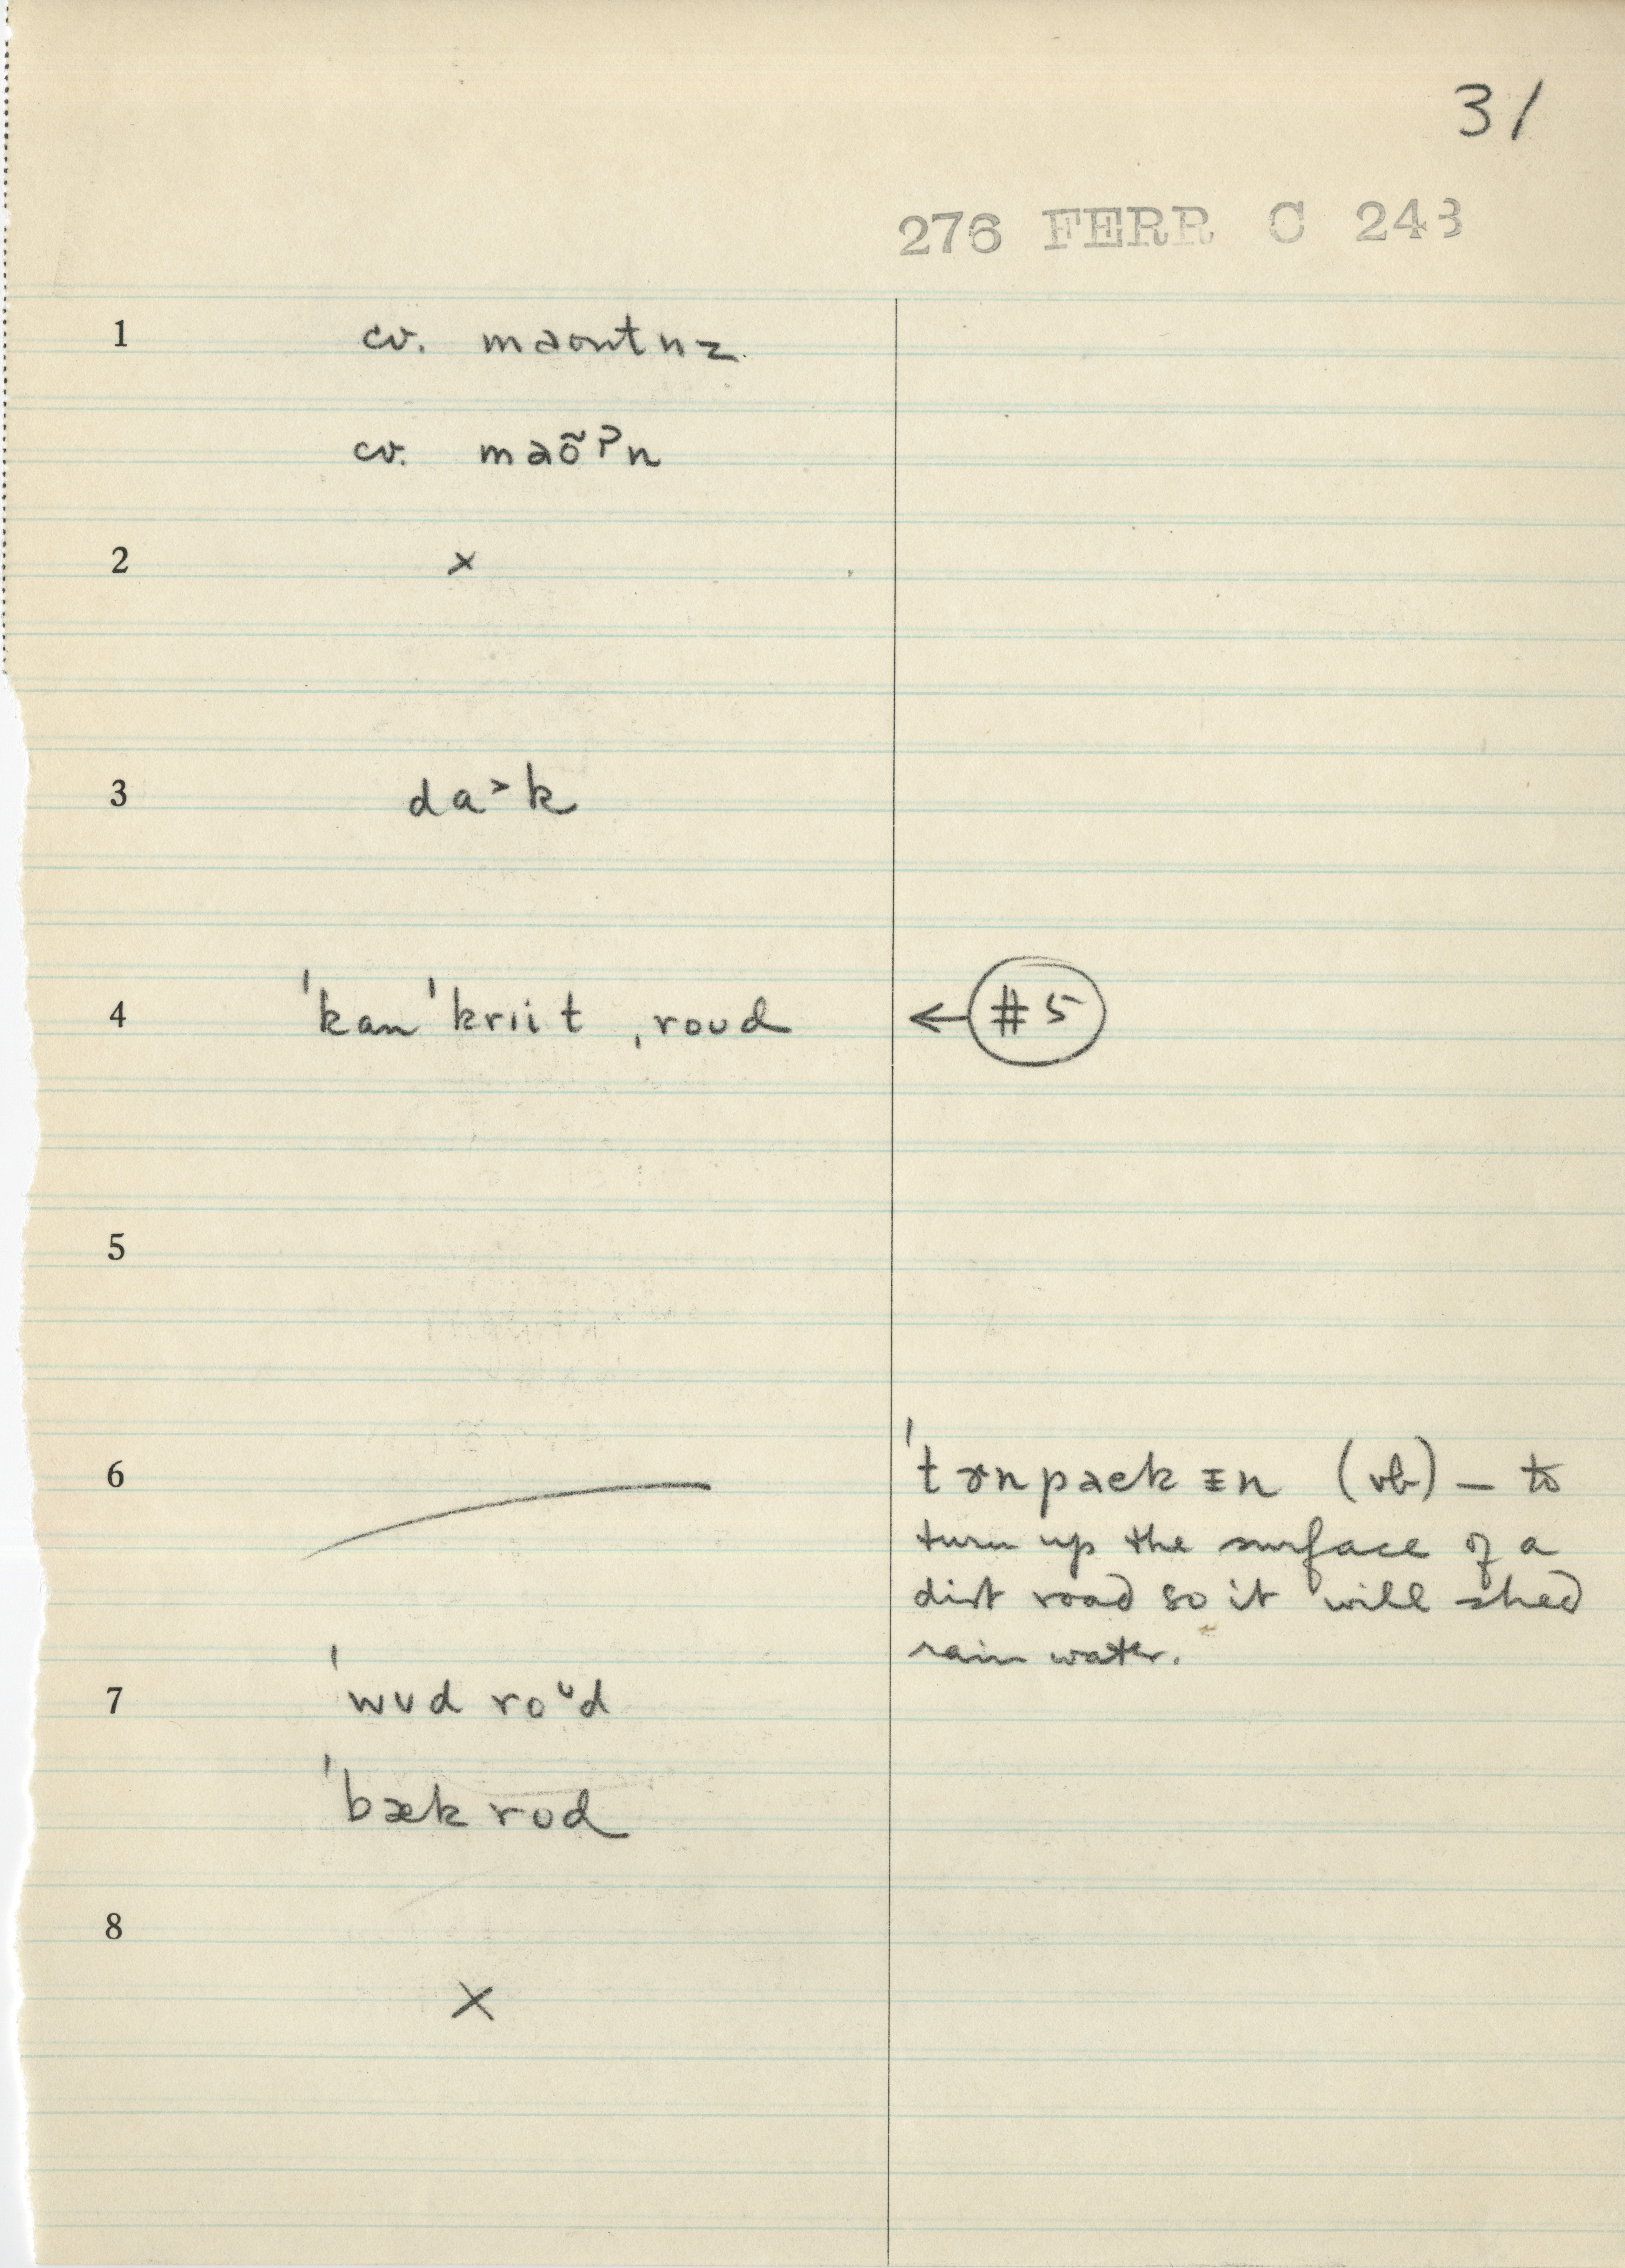 31
276 FERR C 243
1 cv. maʊntnz
cv. maõʔn
2 ×
3 da˃k
4 ˈkanˈkriit ˌroʊd ← #5
5
6 ˈtɝnpaekɪn (vb) — to
turn up the surface of a
dirt road so it will shed
rain water.
7 ˈwʊd roᶷd
ˈbæk rod
8
×